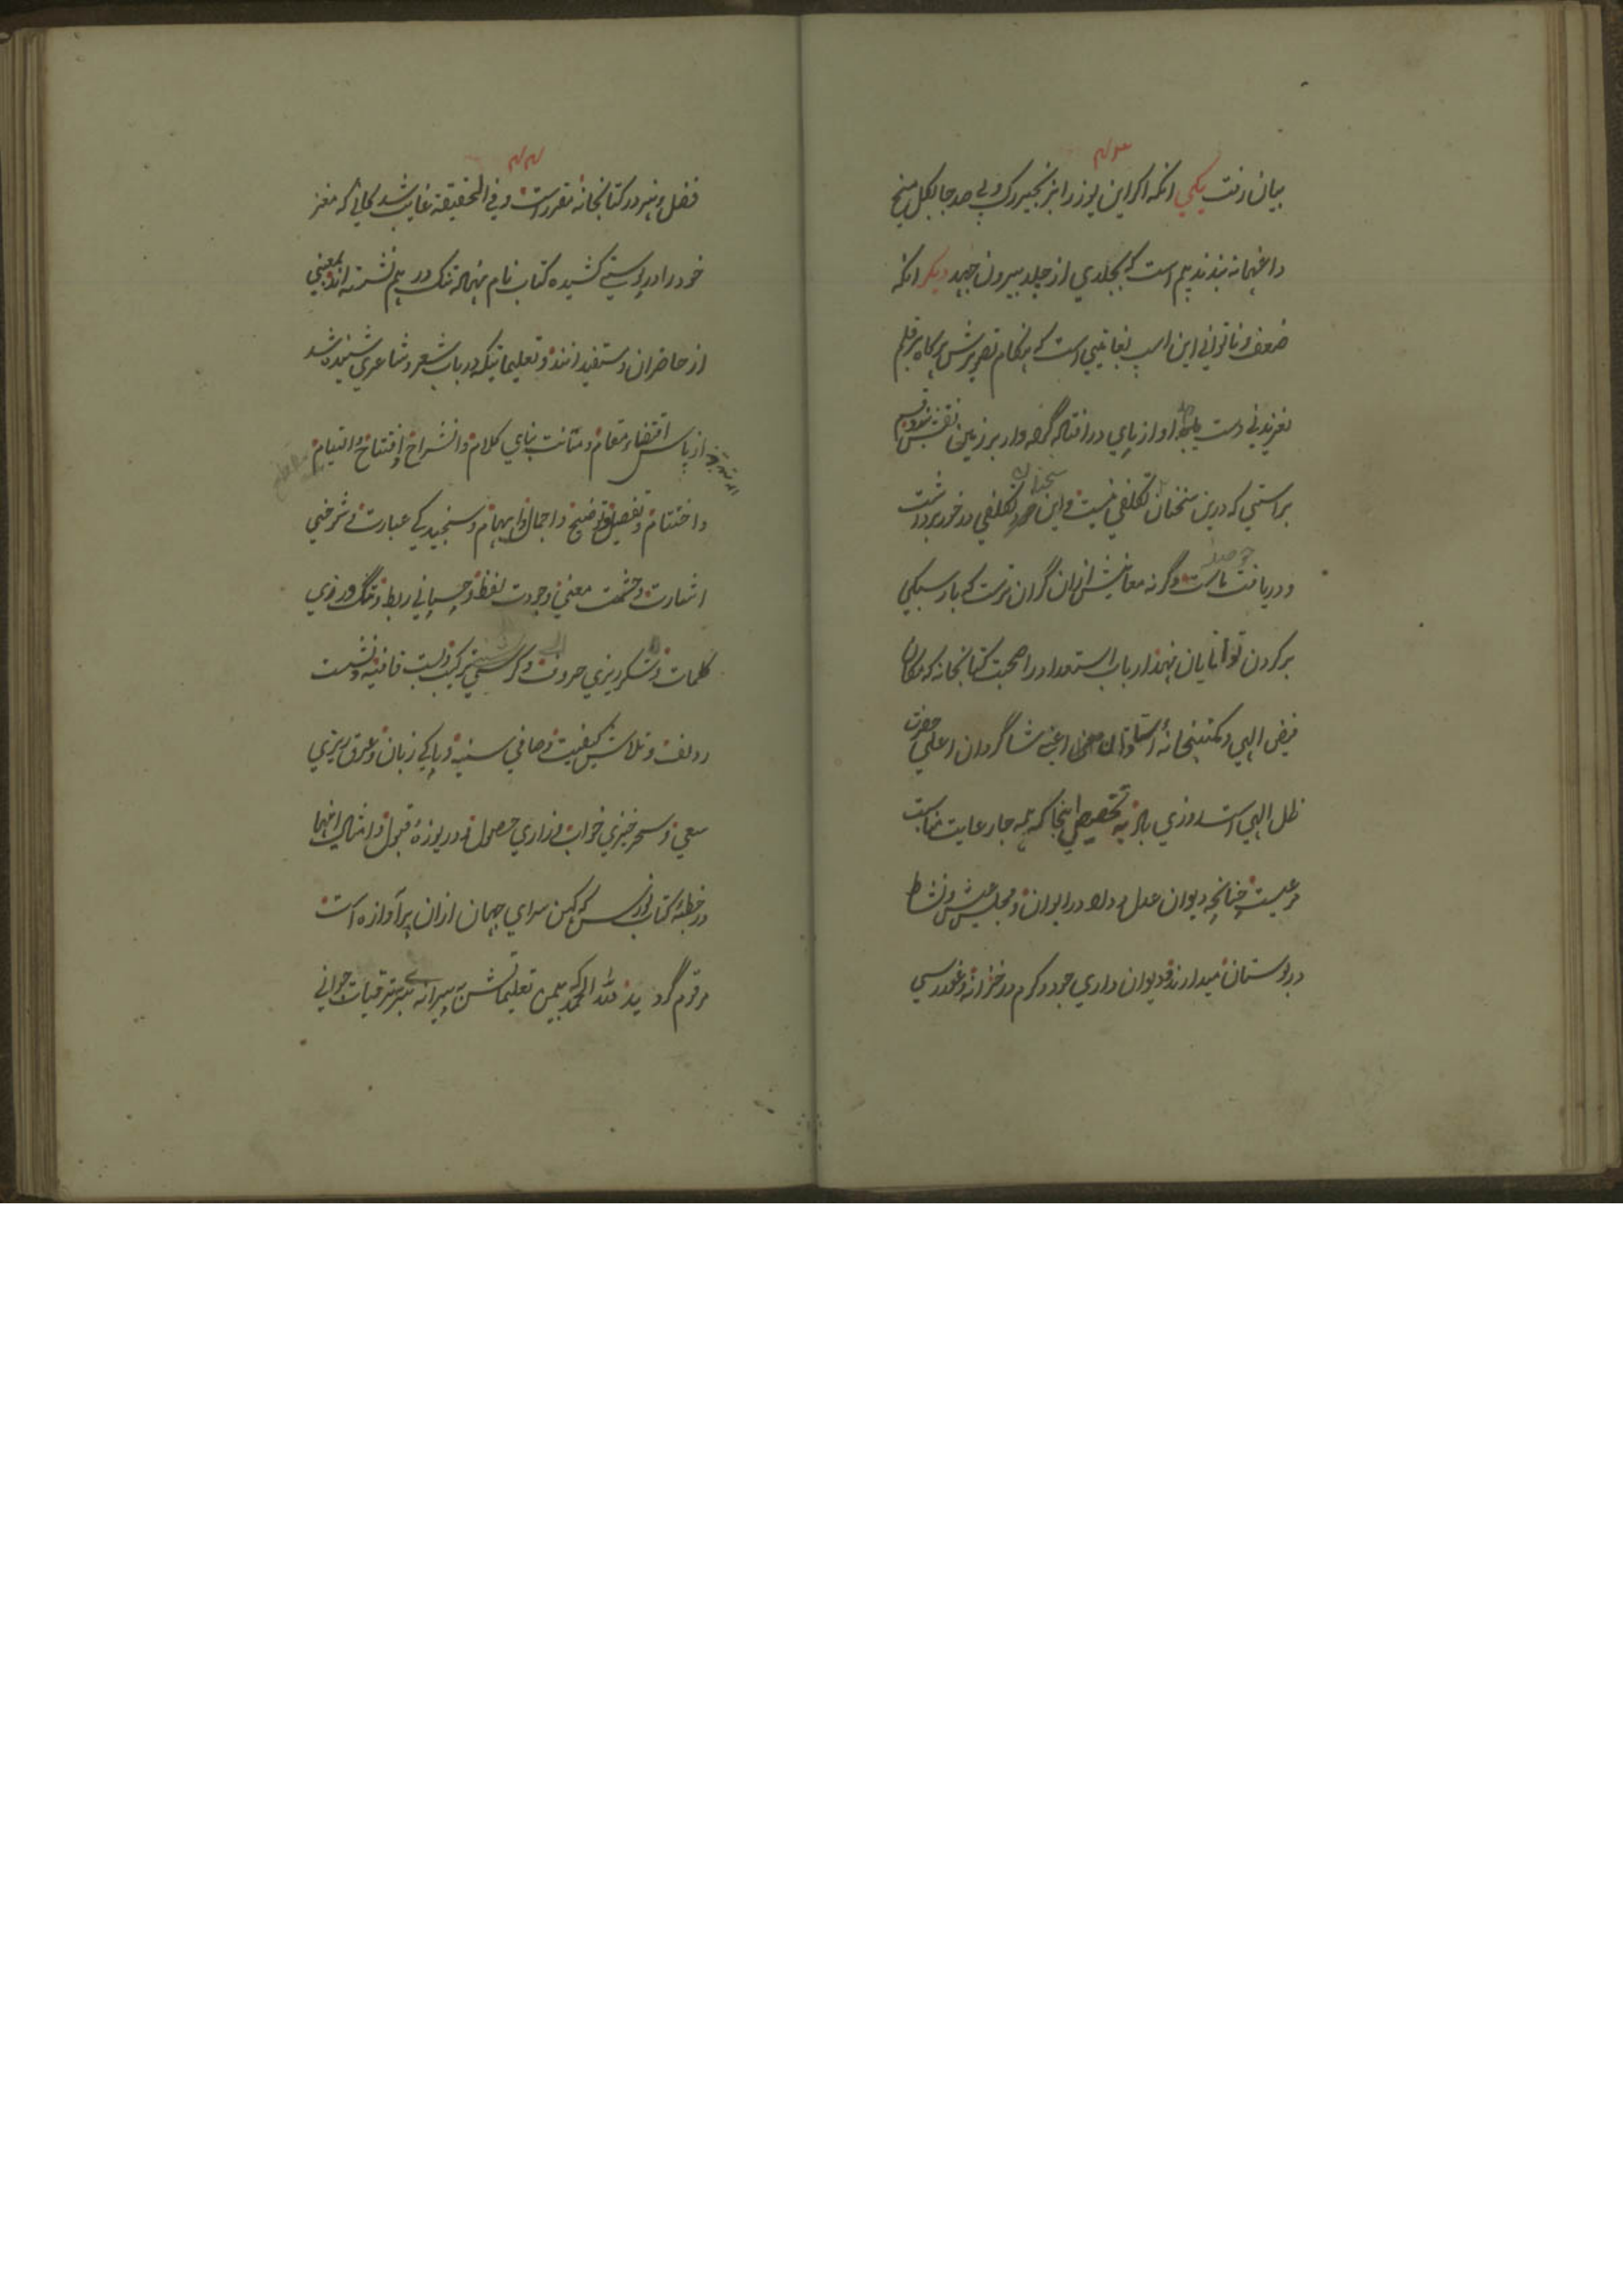 بیان رفت یکی انکه اکر این یوز را بزنجیر رک و پی صد جا بکل میخ
داغها نه بندند بیم است که بجلدی از جلد بیرون جهد دیکر انکه
ضعف و ناتوانی این اسپ بغایتی است که هنکام تصویرش پرکاه بر قلم
دست او از پای در افتاده وار بر زمین نقش شود
براستی که درین سخنان تکلفی نیست و این تکلفی در خور برداشت
و دریافت ماست وگرنه معانیش ازان گران ترست که بار سبکی
بر گردن توانایان نهند ارباب استعداد را صحبت کتابخانه که مکان
فیض الهی و مکتبخانهٔ استادان اعنی شاگردان اعلی حضرت
ظل الهی است روزی باد تخصیص اینجا که همه جا رعایت مناسبت
مرعیست چنانچه دیوان عدل و داد در ایوان و مجلس عیش و نشاط
در بوستان میدارند و دیوان داری جود و کرم در خزانه و غوررسی
فضل و هنر در کتابخانه مقررست و فی الحقیقة که مغز
خود را در پوستی کشیده کتاب نام نهاده تنک در هم نشسته اند بمعنی
از حاضران و مستفیدانند و تعلیماتیکه در باب شعر و شاعری شنیده شد
از پاس اقتضاء مقام و متانت بنای کلام و انشراح افتتاح و التیام
و اختتام و تفصیل و توضیح و اجمال و ابهام و سنجیدکی عبارت و شوخی
اشارت و حشمت معنی و جودت لفظ و چسپانی ربط و تنگ ورزی
کلمات و شکرریزی حروف و کرسی ترکیب و بست قافیه و نشست
ردیف و تلاش کیفیت و صافی سینه و پاکی زبان و عرق ریزی
سعی و سحرخیزی خواب و زاری حصول و دریوزهٔ قبول و امثال اینها
در خطبهٔ کتاب نورس که کهن سرای جهان ازان پرآوازه است
مرقوم گردید لله الحمد که بیمن تعلیماتش پیرانه سر ترقیات جوانی